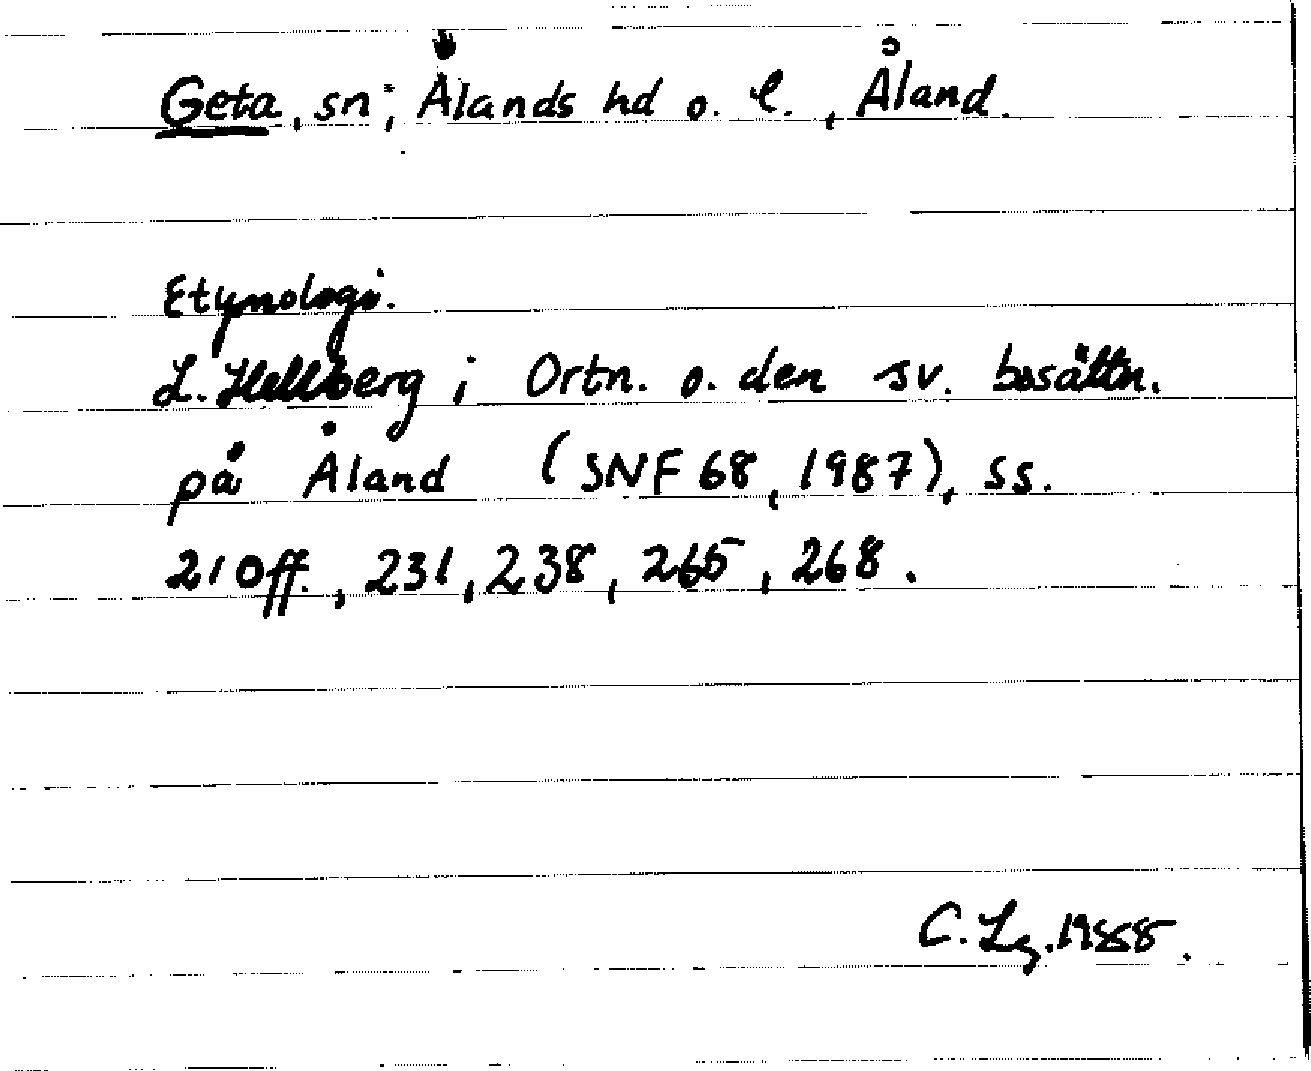 Geta, sn; Ålands hd o. l., Åland.
Etymologi.
L. Hellberg i Ortn. o. den sv. bosättn.
på Åland (SNF 68, 1987), ss.
210ff., 231, 238, 265, 268.
C. Lg. 1988.